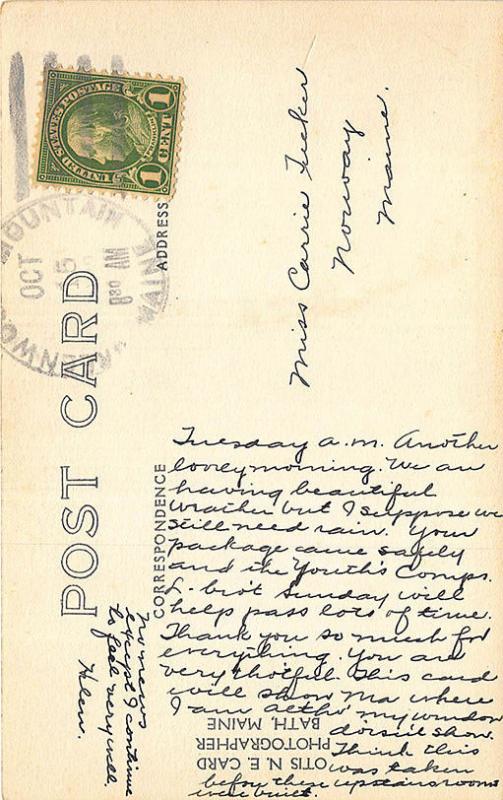 POST CARD
ADDRESS
CORRESPONDENCE
UNITED STATES POSTAGE
1 CENT 1
MOUNTAIN
OCT
5
8 30 AM
MAINE
Miss Carrie Tucker
Norway
Maine.
Tuesday a.m. Another
lovely morning. We are
having beautiful
weather but I suppose we
still need rain. Your
package came safely
and the Youth's Comps.
L. bro't Sunday will
help pass lots of time.
Thank you so much for
everything. You are
very tho'tful. This card
will show Ma where
I am altho' my window
doesn't show.
Think this
was taken
before these upstairs rooms
were built.
No news
except I continue
to feel very well.
Helen.
OTIS N. E. CARD
PHOTOGRAPHER
BATH, MAINE